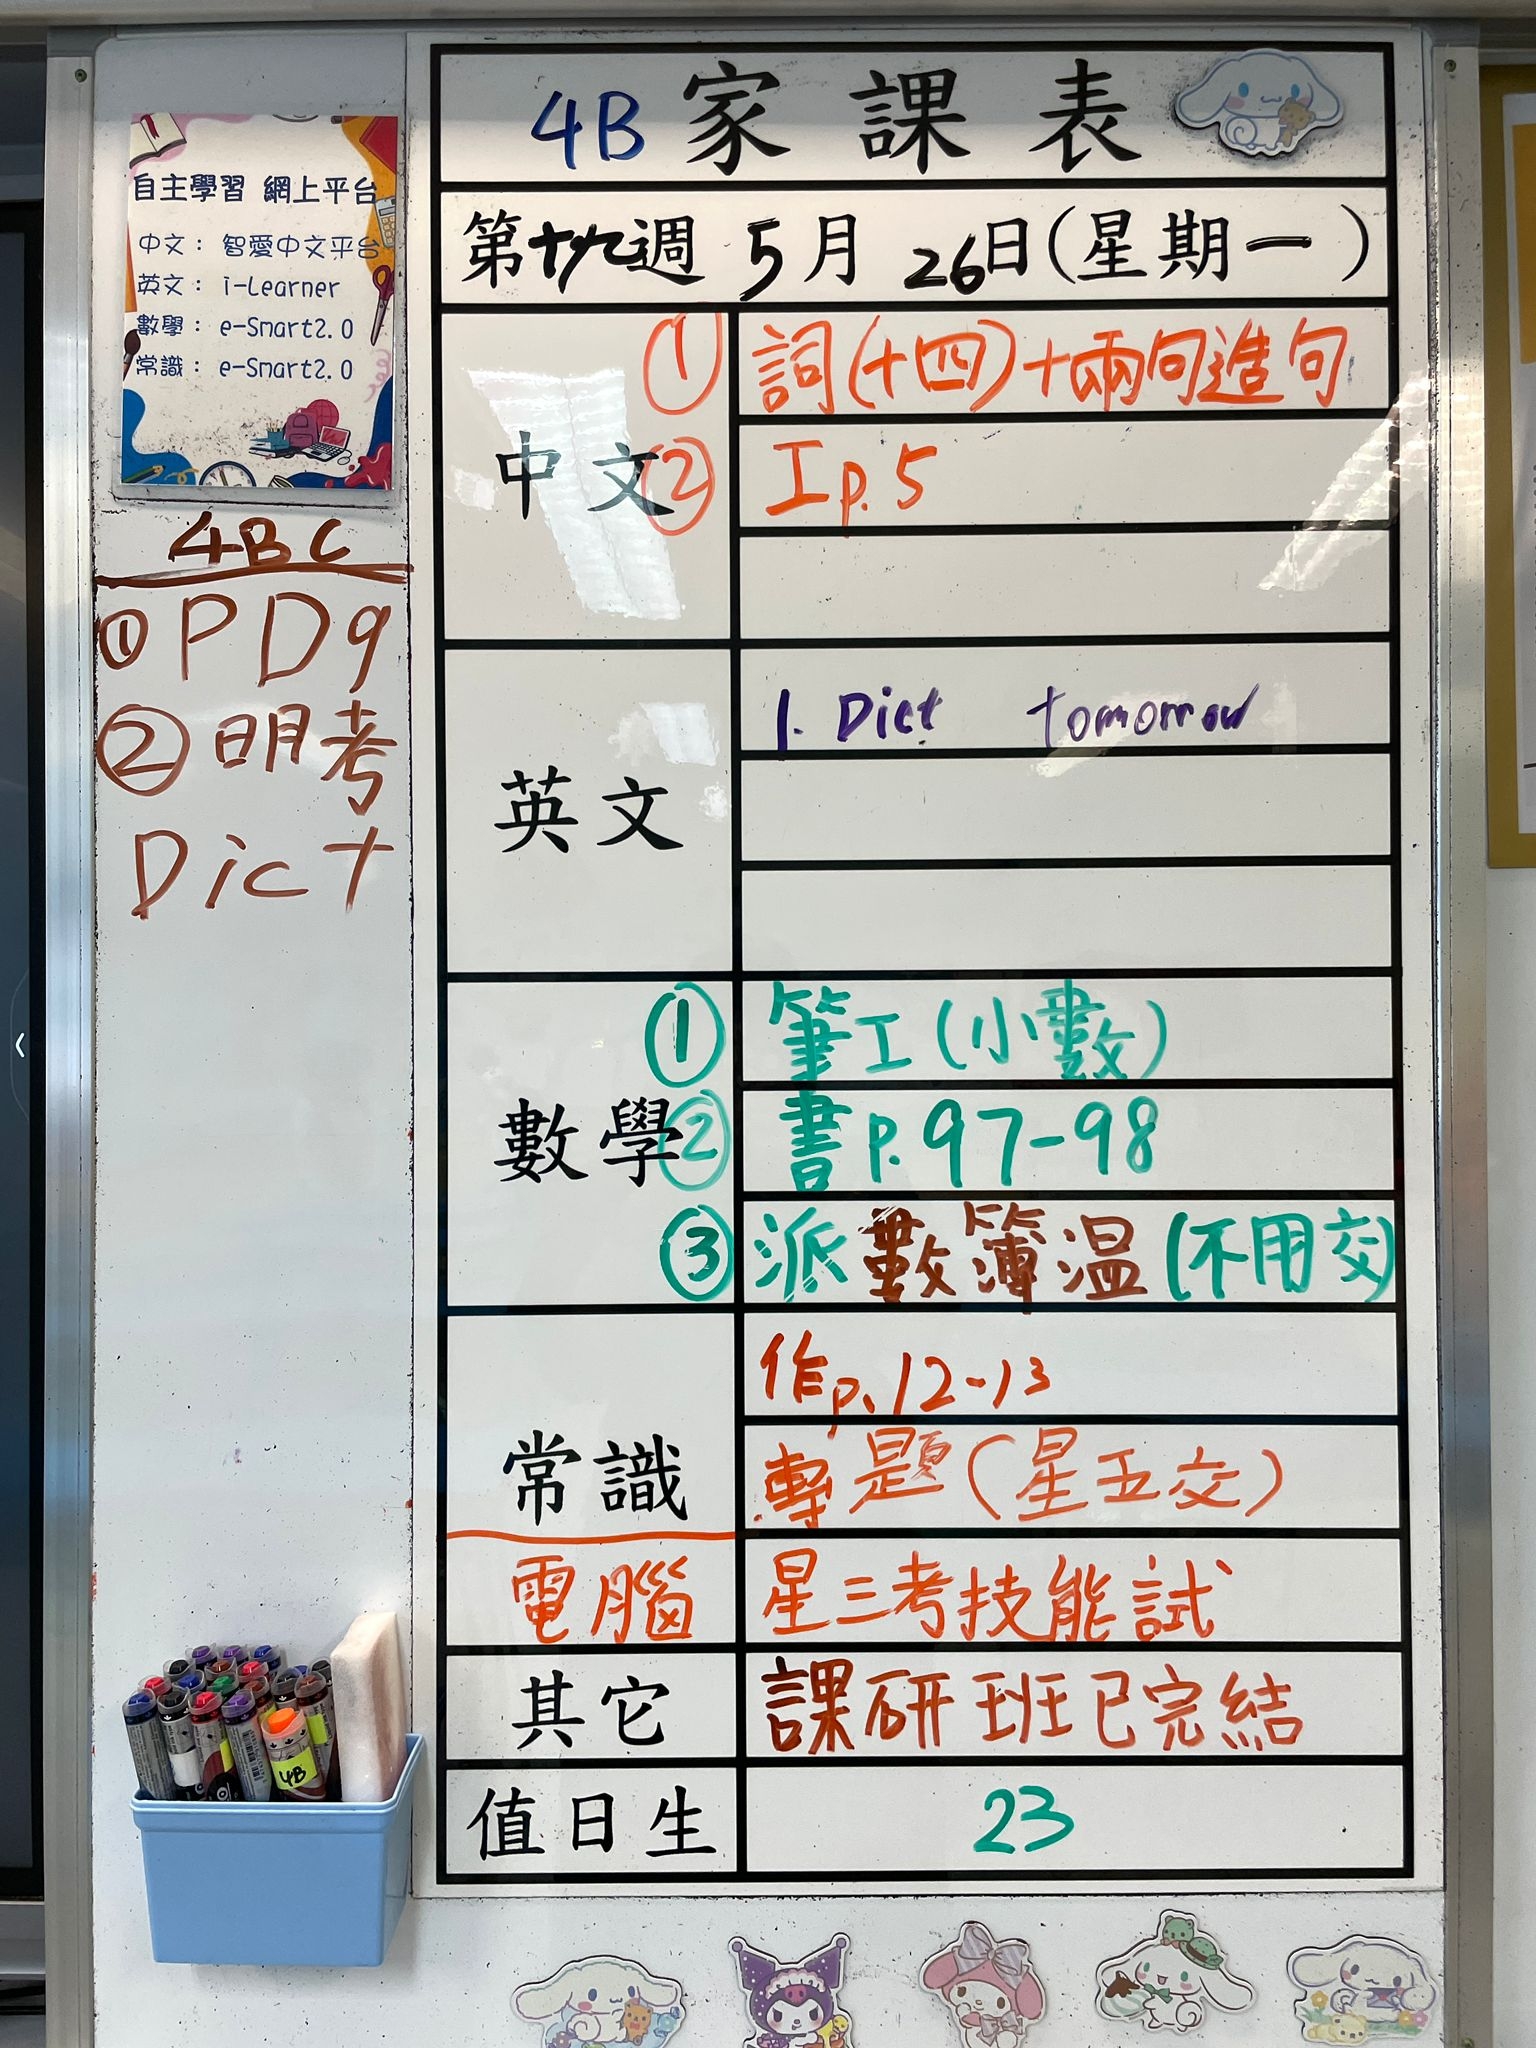 自主學習 網上平台
中文： 智愛中文平台
英文： i-Learner
數學： e-Smart2.0
常識： e-Smart2.0
4BC
① PD9
② 明考
Dict
4B 家課表
第十九週 5月 26日(星期一)
中文
① 詞(十四)+兩句造句
② 工p.5
英文
1. Dict tomorrow
數學
① 筆工(小數)
② 書P.97-98
③ 派數簿温(不用交)
常識
作p.12-13
專題(星五交)
電腦
星三考技能試
其它
課研班已完結
值日生
23
4B